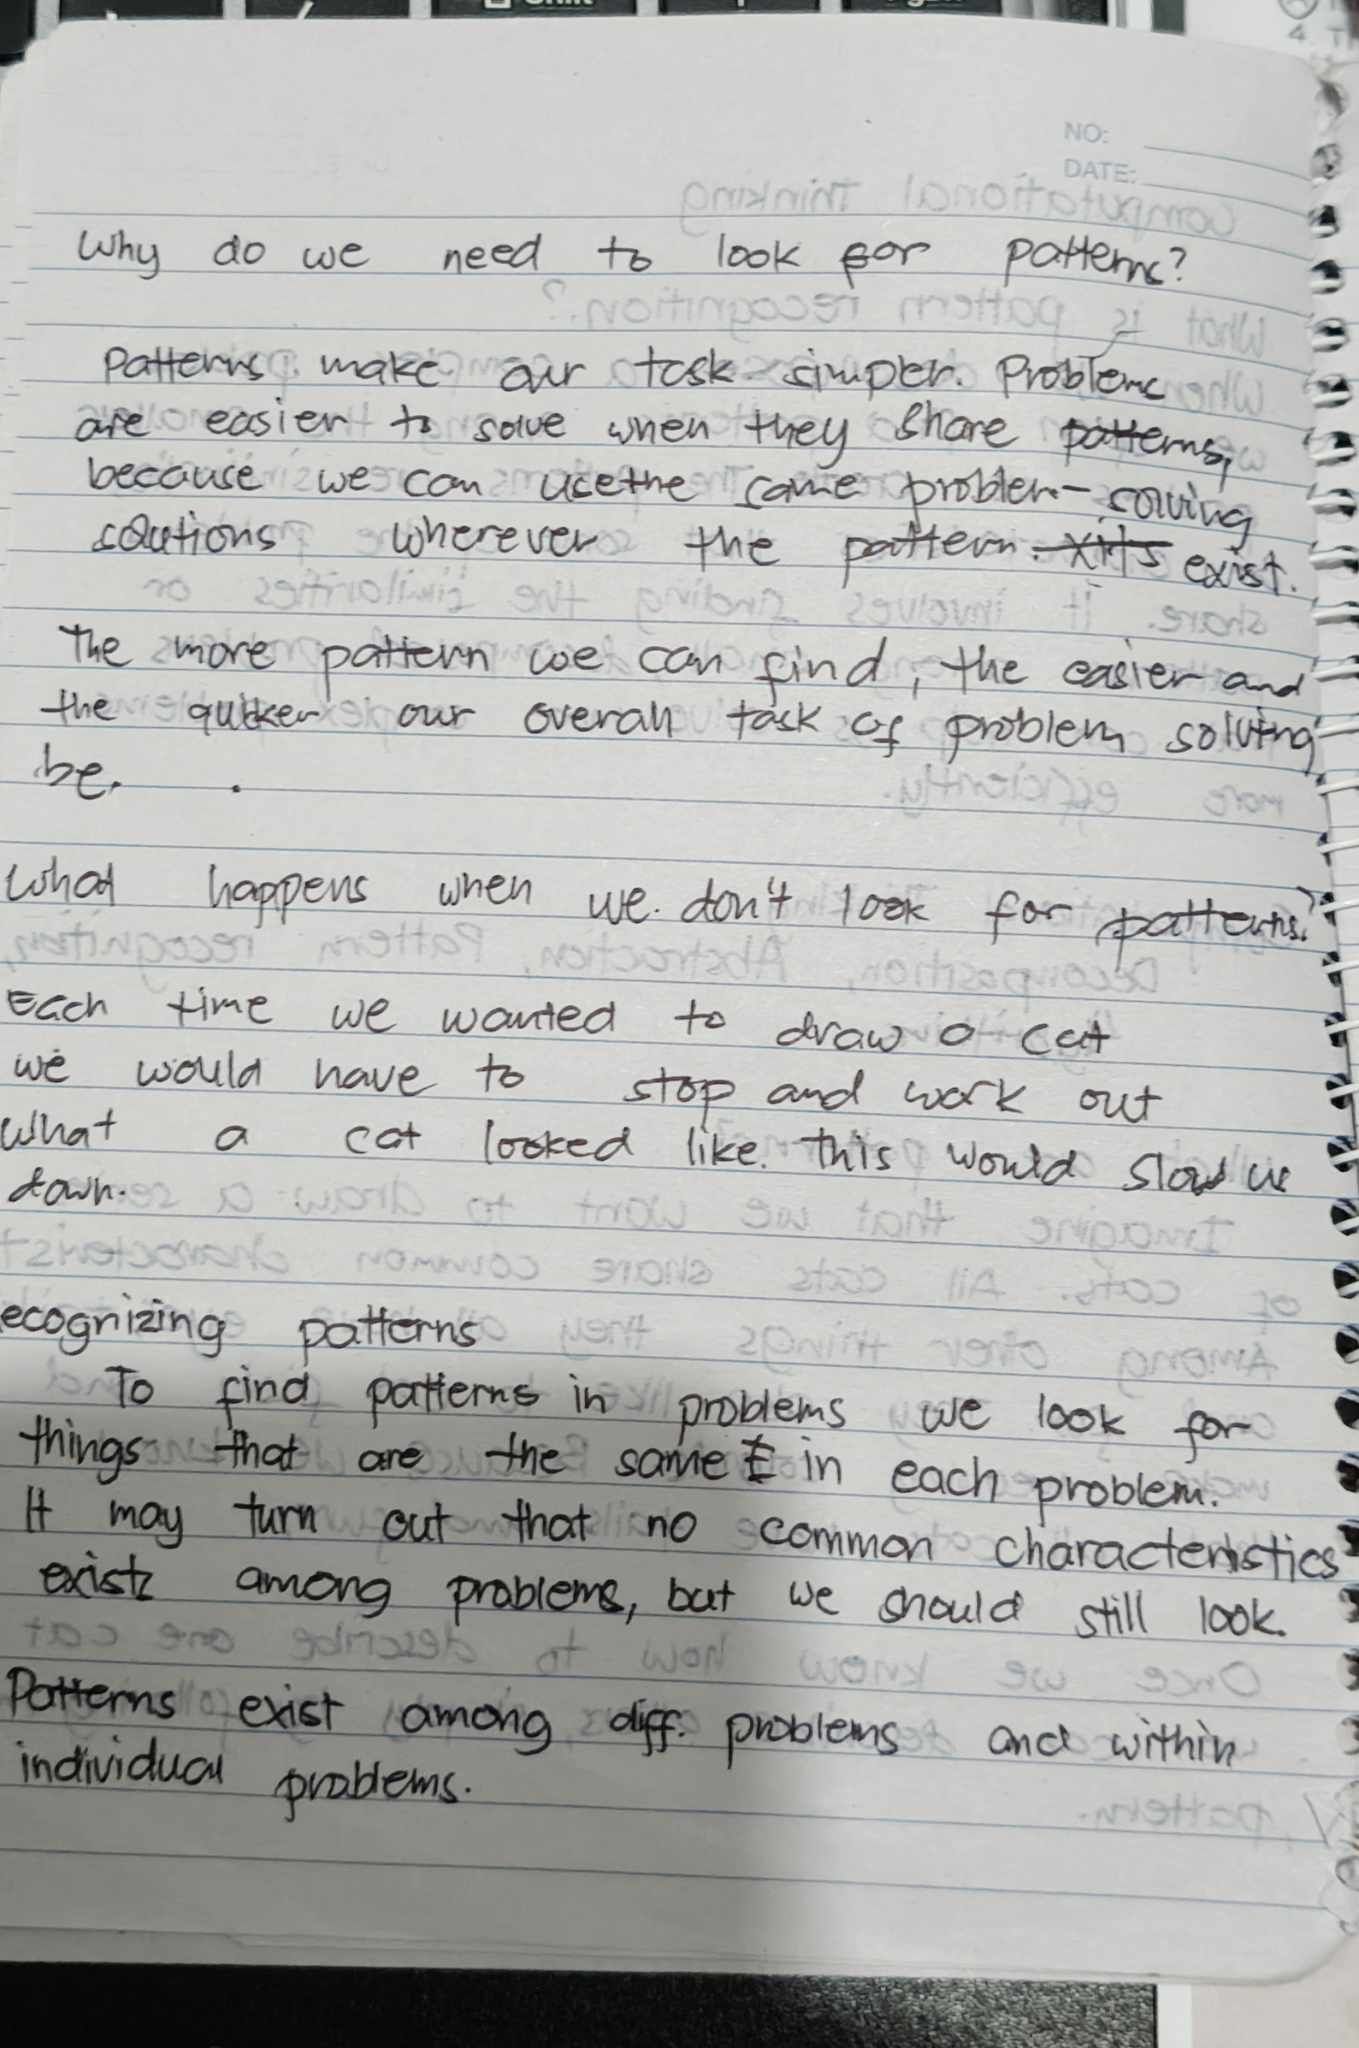 NO:
DATE:
Why do we need to look for patterns?
Patterns make our task simpler. Problems
are easier to solve when they share patterns,
because we can use the same problem-solving
solutions wherever the pattern exist.
The more pattern we can find, the easier and
the quicker our overall task of problem solving
be.
What happens when we don't look for patterns?
Each time we wanted to draw a cat
we would have to stop and work out
what a cat looked like. this would slow us
down.
ecognizing patterns
To find patterns in problems we look for
things that are the same in each problem.
It may turn out that no common characteristics
exist among problems, but we should still look.
Patterns exist among diff. problems and within
individual problems.